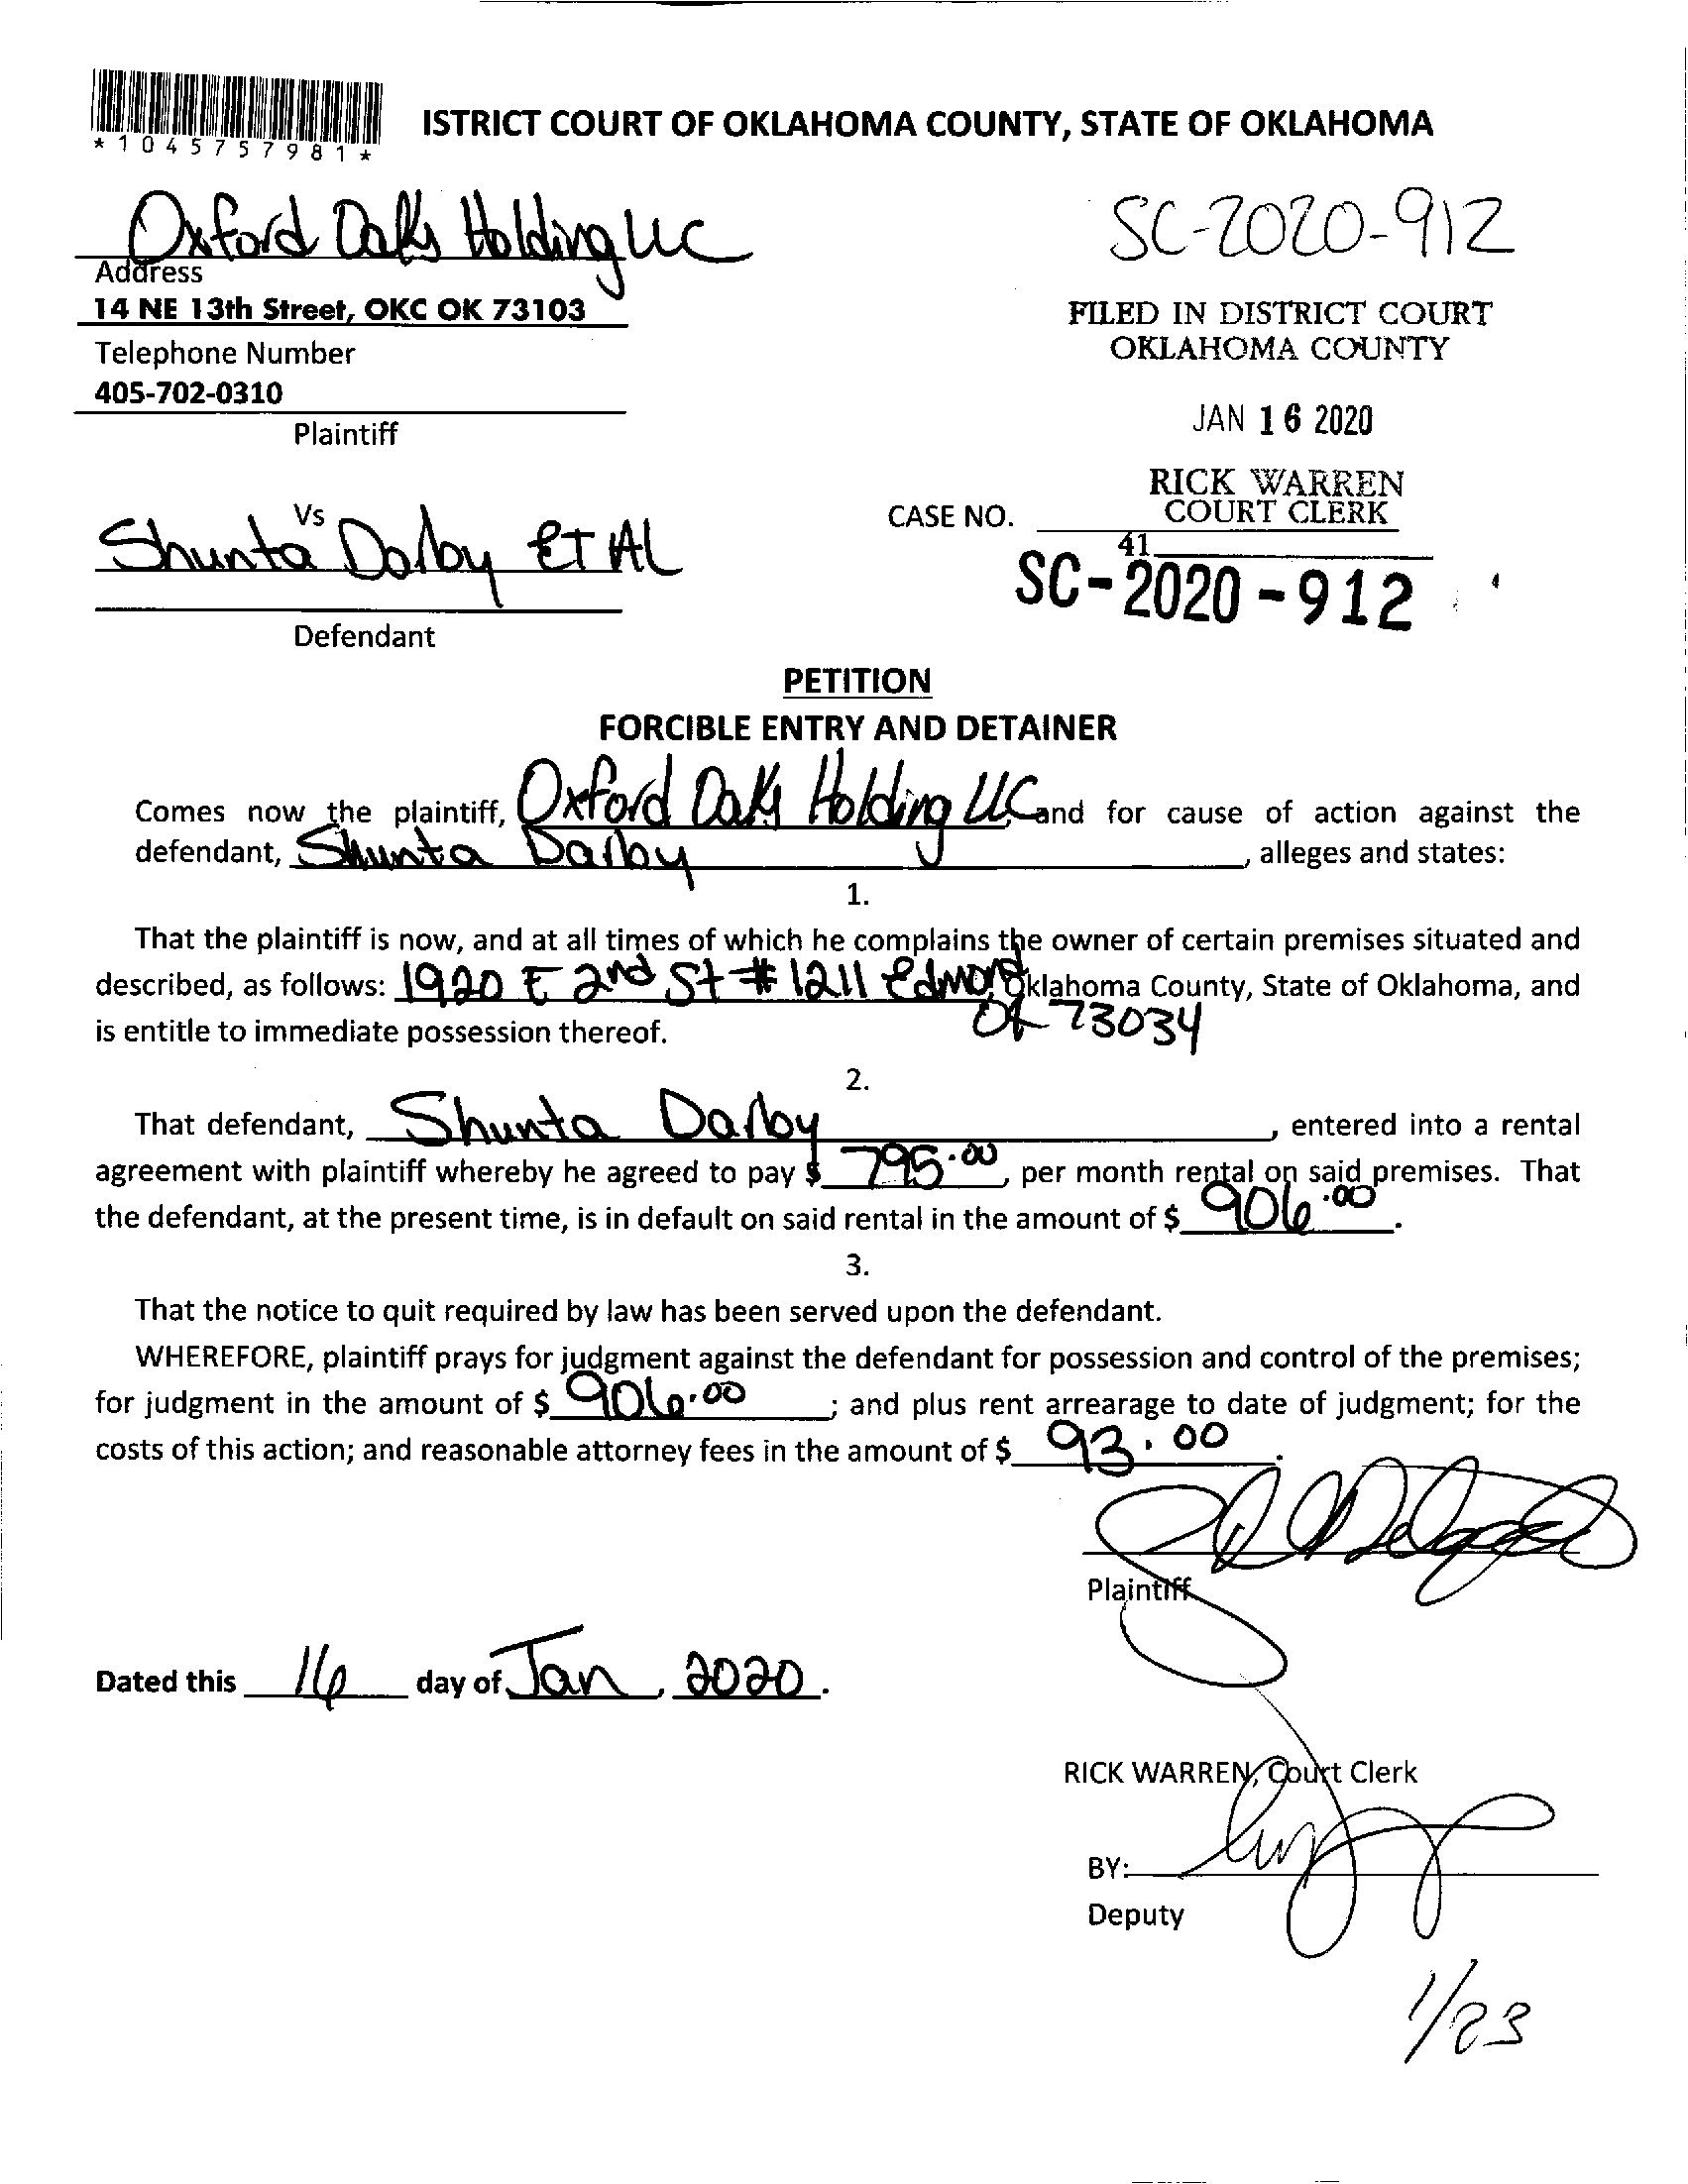 *1045757981*
ISTRICT COURT OF OKLAHOMA COUNTY, STATE OF OKLAHOMA
Oxford Oaks Holding LLC
SC-2020-912
Address
14 NE 13th Street, OKC OK 73103
FILED IN DISTRICT COURT
OKLAHOMA COUNTY
Telephone Number
405-702-0310
JAN 16 2020
Plaintiff
RICK WARREN
COURT CLERK
Vs
CASE NO.
Shunta Darby ET AL
41
SC-2020-912
Defendant
PETITION
FORCIBLE ENTRY AND DETAINER
Comes now the plaintiff, Oxford Oaks Holding LLC, and for cause of action against the
defendant, Shunta Darby, alleges and states:
1.
That the plaintiff is now, and at all times of which he complains the owner of certain premises situated and
described, as follows: 1920 E 2nd St #1211 Edmond, Oklahoma County, State of Oklahoma, and
OK 73034
is entitle to immediate possession thereof.
2.
That defendant, Shunta Darby, entered into a rental
agreement with plaintiff whereby he agreed to pay $ 795.00, per month rental on said premises. That
the defendant, at the present time, is in default on said rental in the amount of $ 906.00.
3.
That the notice to quit required by law has been served upon the defendant.
WHEREFORE, plaintiff prays for judgment against the defendant for possession and control of the premises;
for judgment in the amount of $ 906.00; and plus rent arrearage to date of judgment; for the
costs of this action; and reasonable attorney fees in the amount of $ 93.00.
Plaintiff
Dated this 16 day of Jan, 2020.
RICK WARREN, Court Clerk
BY:
Deputy
1/23